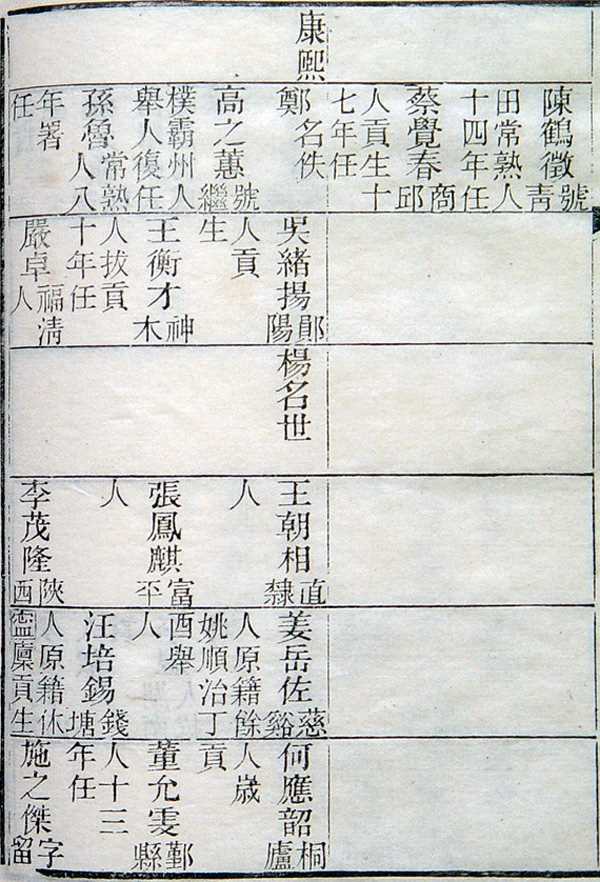 康熙
陳鶴徵號青
田常熟人
十四年任
蔡覺春商邱
人貢生十
七年任
鄭名佚
高之蕙號繼
樸霸州人
舉人復任
孫魯常熟人八
年署
任
吳緒揚鄖陽
人貢
生
王衡才神木
人拔貢
十年任
嚴卓福清人
楊名世
王朝相直隸
人
張鳳麒富平
人
李茂隆陝西
姜岳佐慈谿
人原籍餘
姚順治丁
酉舉
人
汪培錫錢塘
人原籍休
廩貢生
何應韶桐廬
人歲
貢
董允雯鄞縣
人十三
年任
施之傑字留